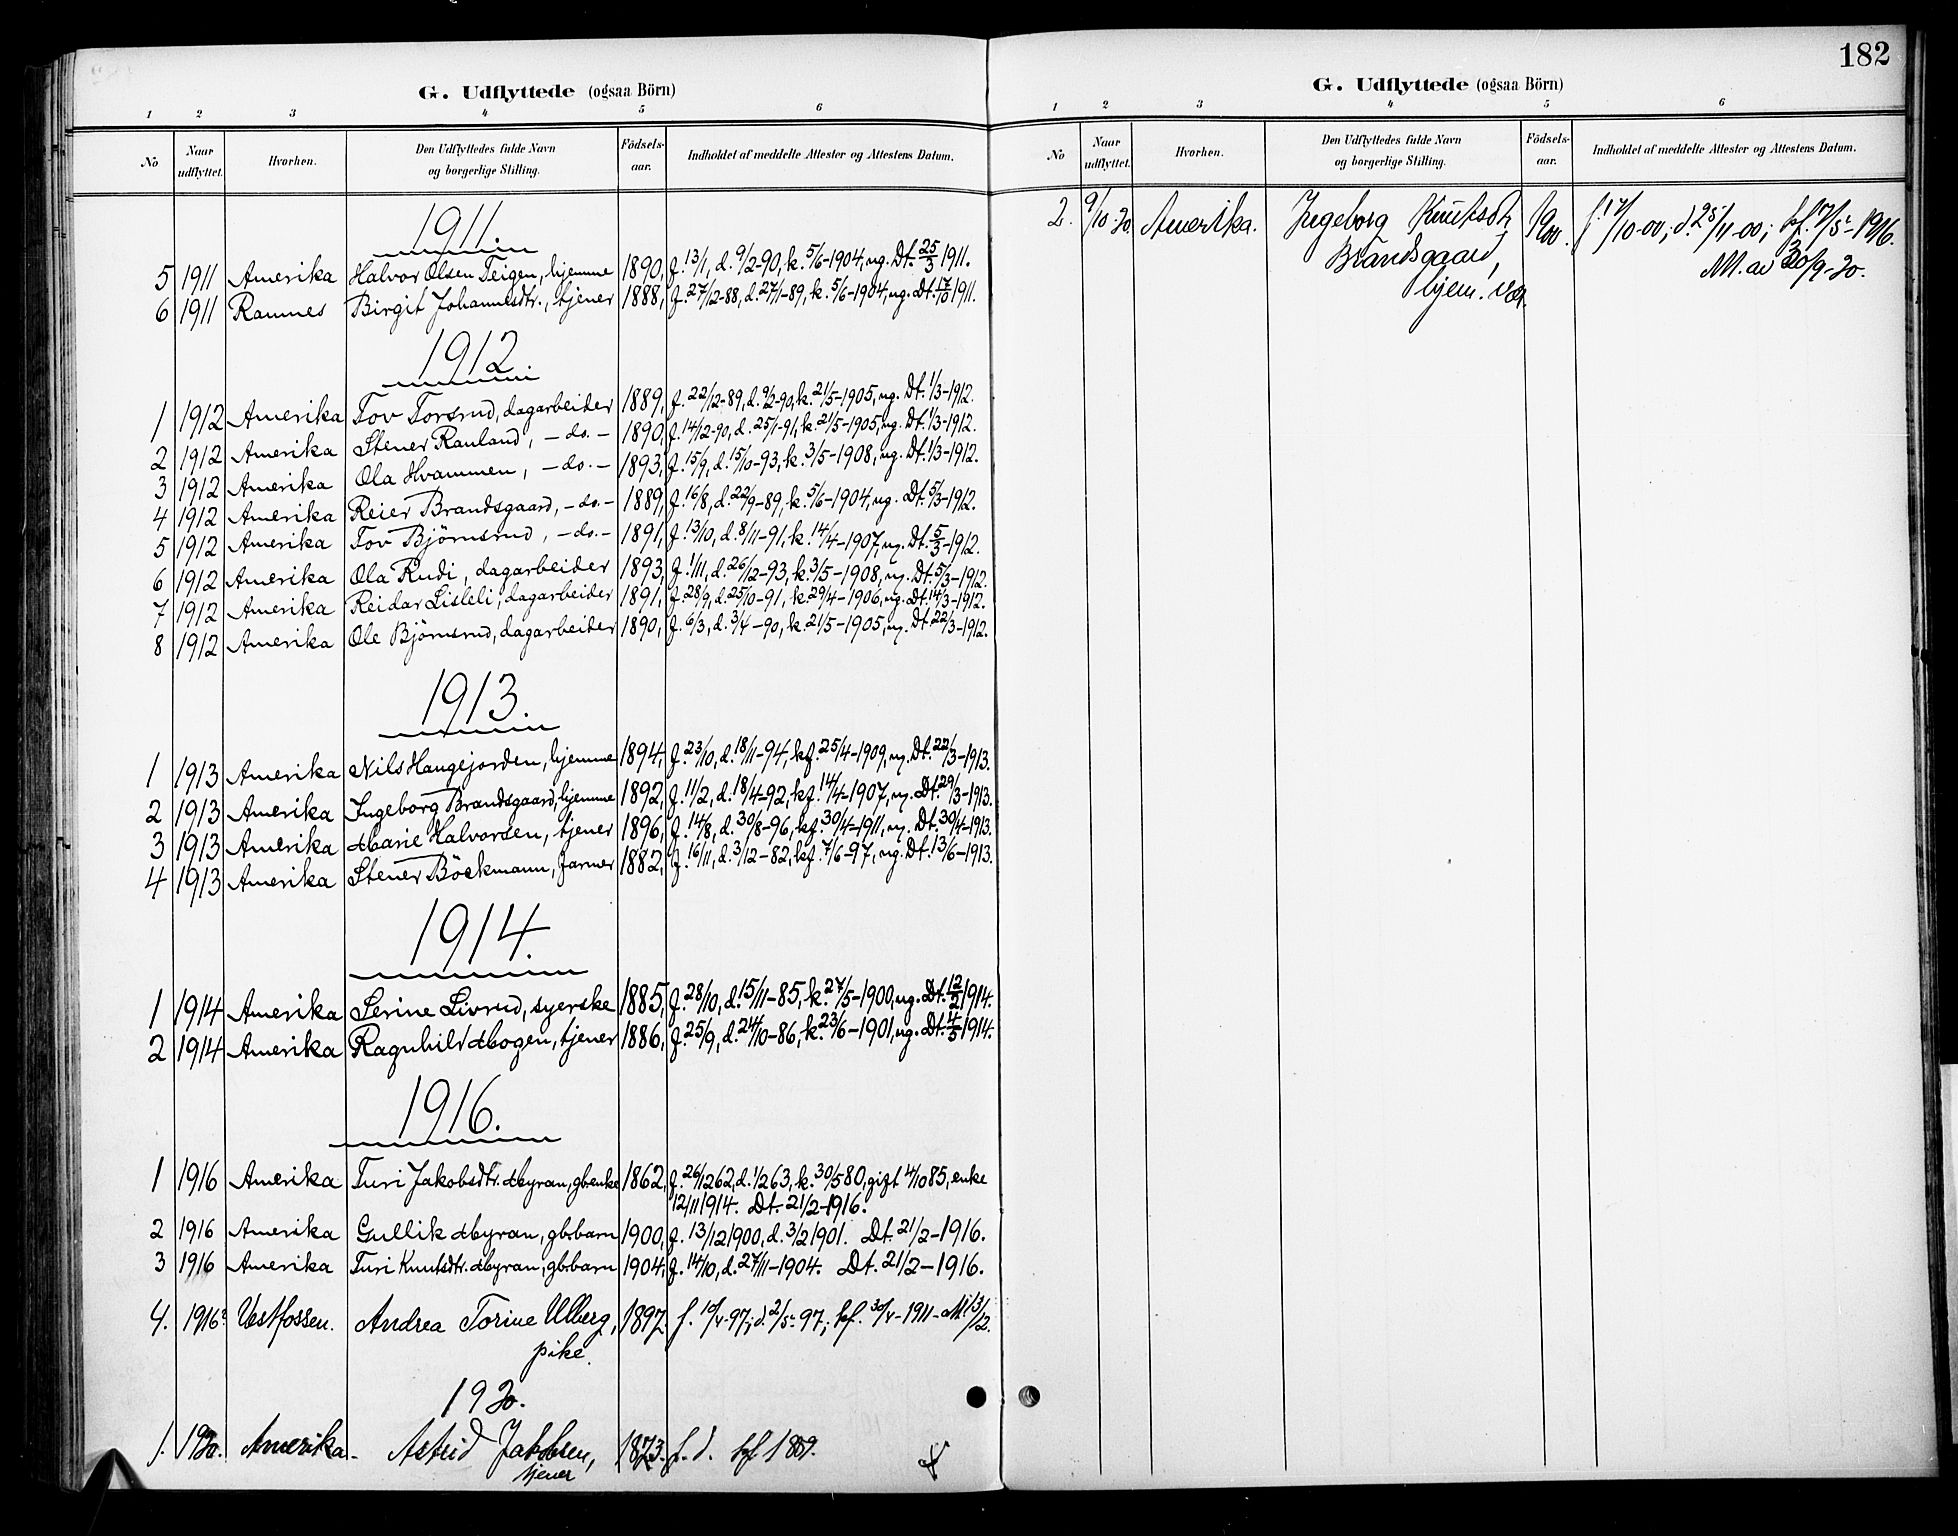 G. Udflyttede (ogsaa Börn)
1 2 3 4 5 6
No Naar udflyttet. Hvorhen. Den Udflyttedes fulde Navn og borgerlige Stilling. Födsels-aar. Indholdet af meddelte Attester og Attestens Datum.
1911
5 1911 Amerika Halvor Olsen Teigen, hjemme 1890, f. 13/1, d. 9/2-90, k. 5/6-1904, ug. Dt. 25/3 1911.
6 1911 Ramnes Birgit Johannesdtr., tjener 1888, f. 27/12-88, d. 27/1-89, k. 5/6-1904, ug. Dt. 17/10 1911.
1912.
1 1912 Amerika Tov Torsrud, dagarbeider 1889, f. 22/12-89, d. 9/2-90, k. 21/5-1905, ug. Dt. 1/3-1912.
2 1912 Amerika Stener Rauland, -do.- 1890, f. 14/12-90, d. 25/1-91, k. 21/5-1905, ug. Dt. 1/3-1912.
3 1912 Amerika Ola Hvammen, -do.- 1893, f. 15/9, d. 15/10-93, k. 3/5-1908, ug. Dt. 1/3-1912.
4 1912 Amerika Reier Brandsgaard, -do.- 1889, f. 16/8, d. 22/9-89, k. 5/6-1904, ug. Dt. 5/3-1912.
5 1912 Amerika Tov Björnsrud, -do.- 1891, f. 13/10, d. 8/11-91, k. 14/4-1907, ug. Dt. 5/3-1912.
6 1912 Amerika Ola Rudi, dagarbeider 1893, f. 1/11, d. 26/12-93, k. 3/5-1908, ug. Dt. 5/3-1912.
7 1912 Amerika Reidar Lisleli, dagarbeider 1891, f. 28/9, d. 25/10-91, k. 29/4-1906, ug. Dt. 14/3-1912.
8 1912 Amerika Ole Björnsrud, dagarbeider 1890, f. 6/3, d. 3/4-90, k. 21/5-1905, ug. Dt. 22/3-1912.
1913.
1 1913 Amerika Nils Haugejorden, hjemme 1894, f. 23/10, d. 18/11-94, kf. 25/4-1909, ug. Dt. 22/3-1913.
2 1913 Amerika Ingeborg Brandsgaard, hjemme 1892, f. 11/2, d. 18/4-92, kf. 14/4-1907, ug. Dt. 29/3-1913.
3 1913 Amerika Marie Halvorsen, tjener 1896, f. 14/8, d. 30/8-96, kf. 30/4-1911, ug. Dt. 30/4-1913.
4 1913 Amerika Stener Böckmann, farmer 1882, f. 16/11, d. 3/12-82, kf. 7/6-97, ug. Dt. 13/6-1913.
1914.
1 1914 Amerika Serine Livrud, syerske 1885, f. 28/10, d. 15/11-85, k. 27/5-1900, ug. Dt. 12/2 1914.
2 1914 Amerika Ragnhild Mogen, tjener 1886, f. 25/9, d. 24/10-86, k. 23/6-1901, ug. Dt. 4/3 1914.
1916.
1 1916 Amerika Turi Jakobsdtr. Myran, gbrenke 1862, f. 26/12 62, d. 1/2 63, k. 30/5 80, gift 4/10 85, enke
12/11 1914. Dt. 21/2-1916.
2 1916 Amerika Gullik Myran, gbrbarn 1900, f. 13/12 1900, d. 3/2 1901. Dt. 21/2-1916.
3 1916 Amerika Turi Knutsdtr. Myran, gbrbarn 1904, f. 14/10, d. 27/11-1904. Dt. 21/2-1916.
4. 1916 Vestfossen. Andrea Torine Ulberg, 1897 f. 10/4-97; d. 2/5-97; kf. 30/4-1911
pike.
1920.
1. 1920. Amerika. Astrid Jakobsen, 1873. f. d. kf.
tjener
182
G. Udflyttede (ogsaa Börn)
1 2 3 4 5 6
No Naar udflyttet. Hvorhen. Den Udflyttedes fulde Navn og borgerlige Stilling. Födsels-aar. Indholdet af meddelte Attester og Attestens Datum.
2. 9/10 20 Amerika. Ingeborg Knutsdtr. 1900. f. 17/10-00; d. 25/11-00; kf. 17/5-1916.
Brandsgaard, M. av 30/9-20.
hjem.